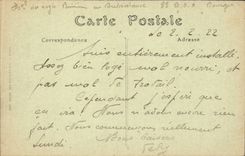 Carte Postale
Correspondance
Adresse
Le 2. 2. 22
Suis entièrement installé
Assez bien logé mal nourri, et
pas mal de travail.
Cependant j'espère que
ça ira! Nous n'avons encore rien
fait. Nous commençons réellement
Lundi
Bons baisers